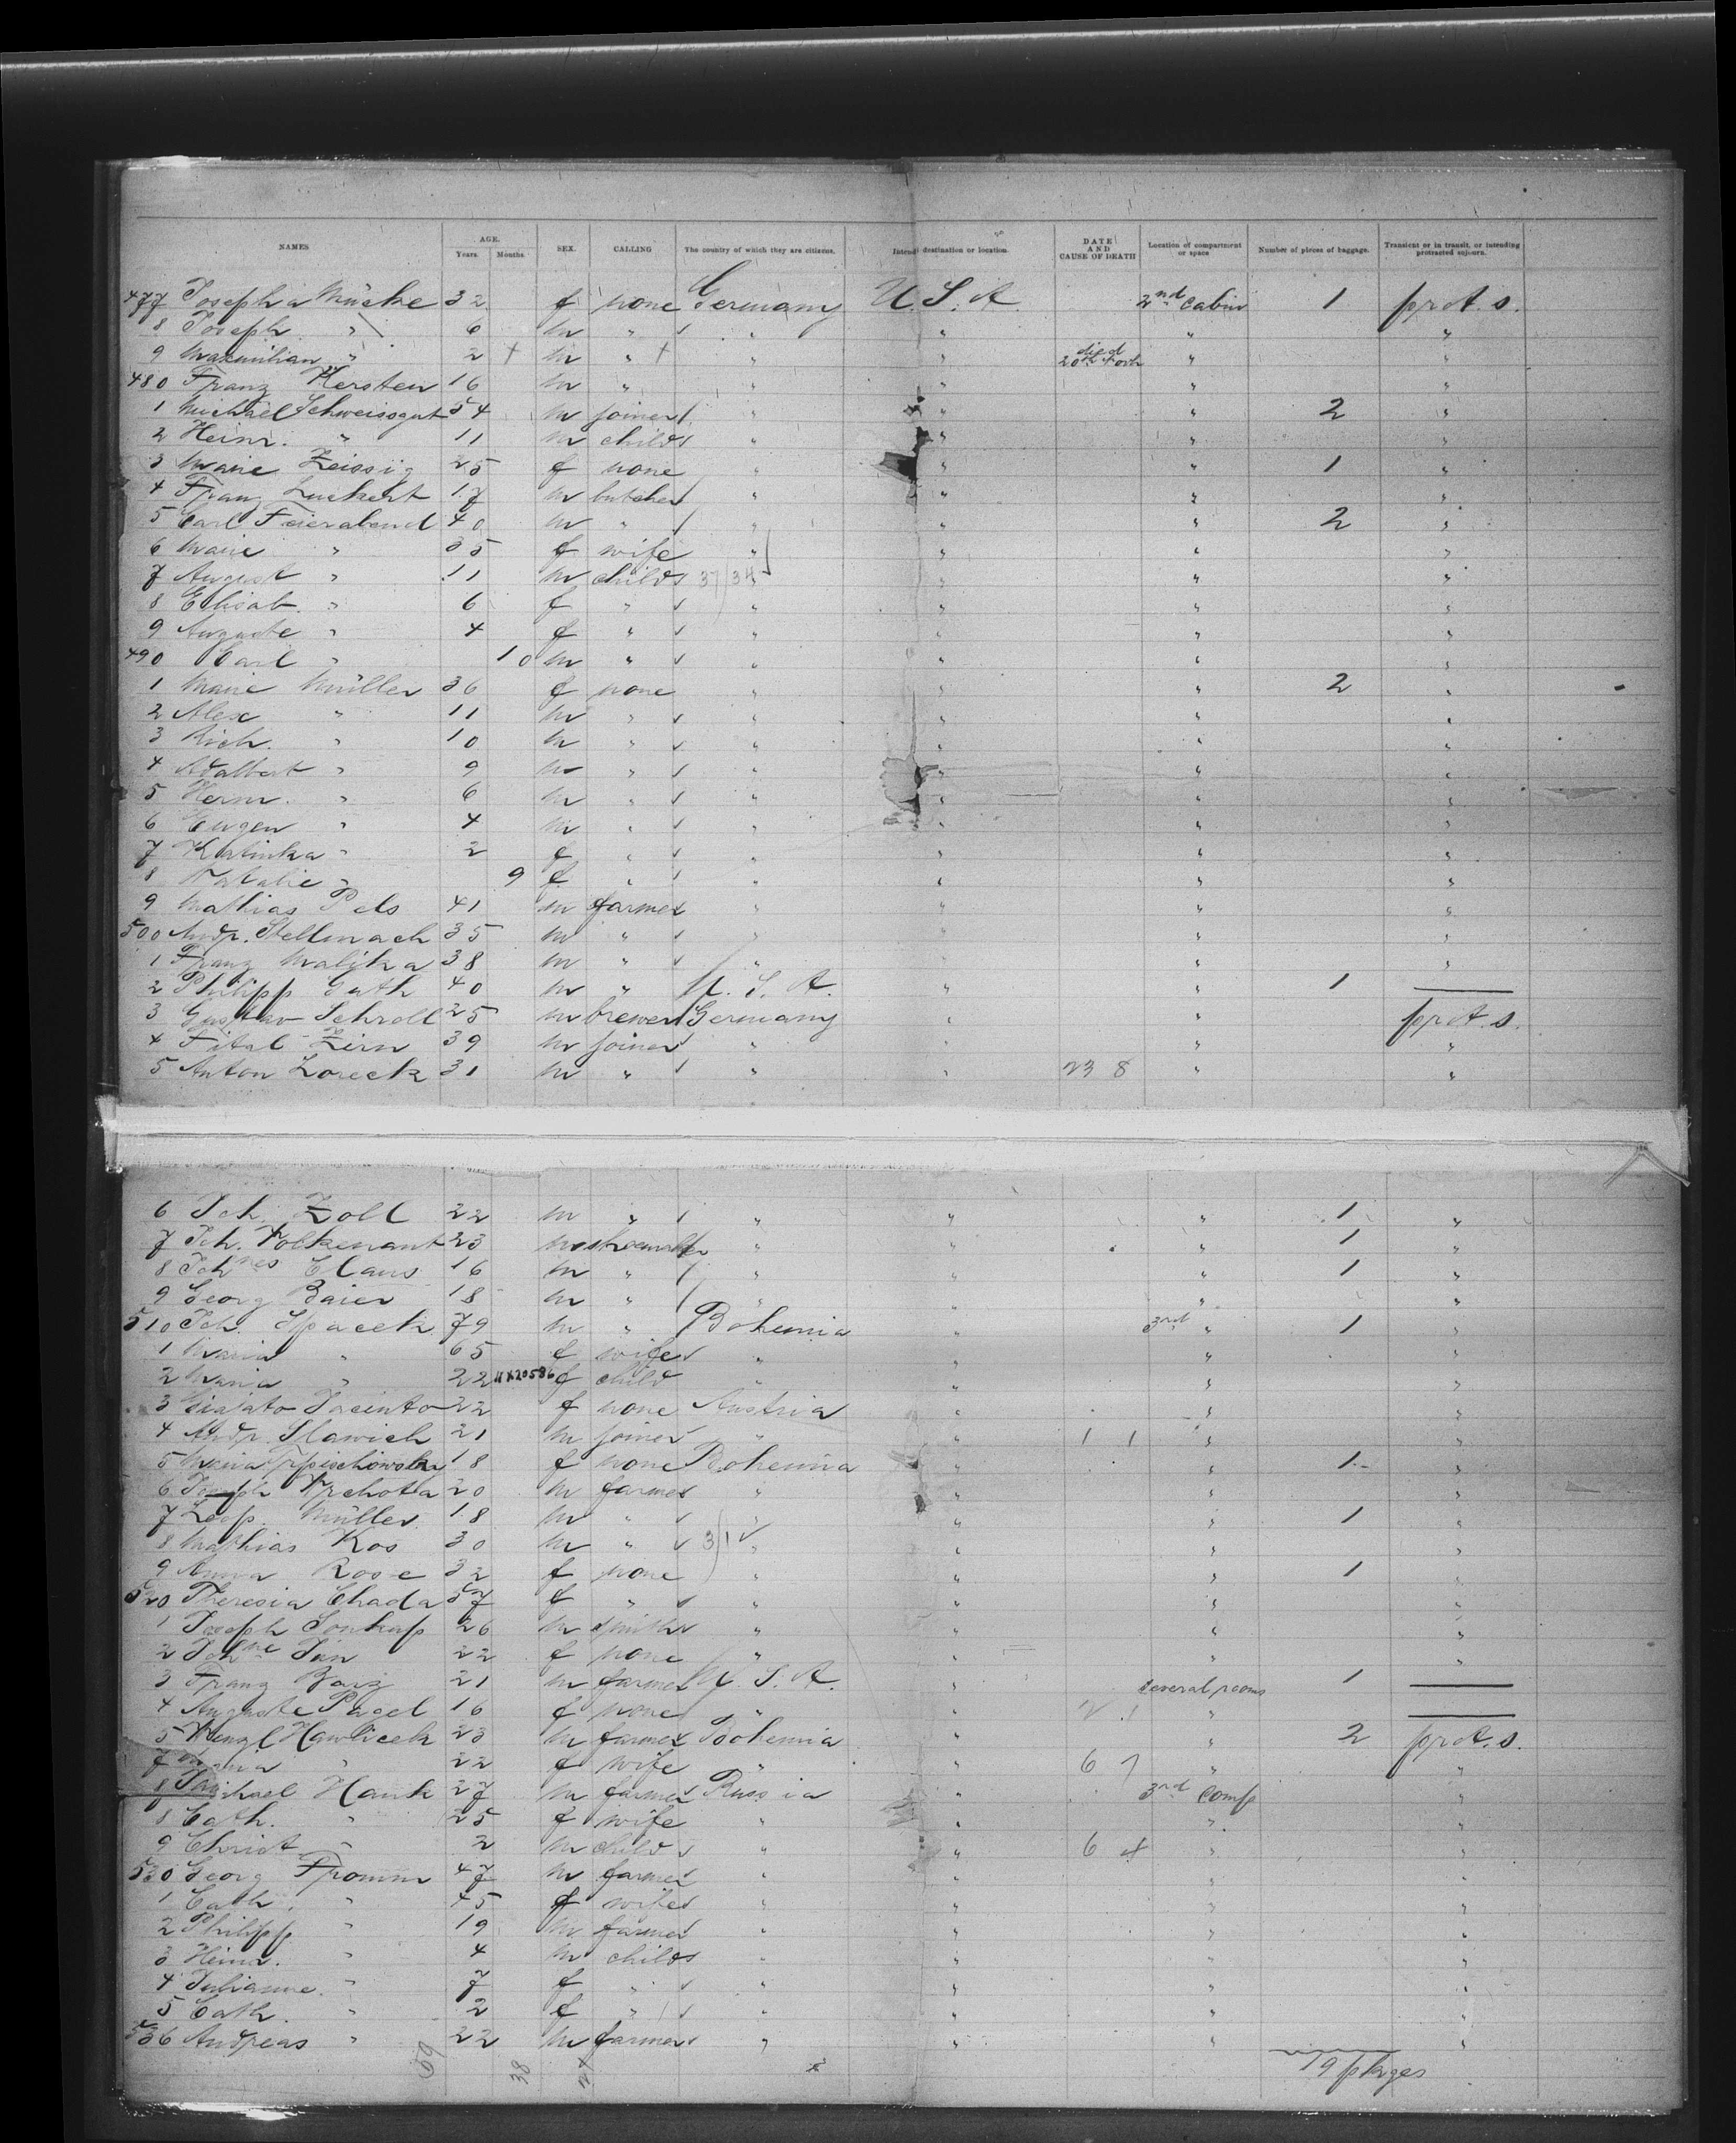 NAMES AGE. Years. Months. SEX. CALLING The country of which they are citizens. Intended destination or location. DATE AND CAUSE OF DEATH Location of compartment or space Number of pieces of baggage. Transient or in transit, or intending protracted sojourn.
477 Josepha Mücke 32 f none Germany U. S. A. 2nd Cabin 1 prot. s.
8 Joseph " 6 m " " " " "
9 Maximilian " 2 + m " + " " died 20th " "
480 Franz Kersten 16 m " " " " "
1 Michael Schweissgut 54 m joiner " " " 2 "
2 Heinr. " 11 m child " " " "
3 Marie Zeissig 25 f none " " " 1 "
4 Franz Luckert 17 m butcher " " " "
5 Carl Feierabend 40 m " " " " 2 "
6 Marie " 35 f wife " " " "
7 August " 11 m child 37 34 " " " "
8 Elisab. " 6 f " " " " "
9 Auguste " 4 f " " " " "
490 Carl " 10 m " " " " "
1 Marie Müller 36 f none " " " 2 "
2 Alex " 11 m " " " " "
3 Rich. " 10 m " " " " "
4 Adalbert " 9 m " " " " "
5 Herm. " 6 m " " " " "
6 Eugen " 4 m " " " " "
7 Katinka " 2 f " " " " "
8 Natalie " 9 f " " " " "
9 Mathias Pels 41 m farmer " " " "
500 Andr. Stellmach 35 m " " " " "
1 Franz Malijka 38 m " " " " "
2 Philipp Guth 40 m " U. S. A. " " 1
3 Gustav Schroll 25 m brewer Germany " " prot. s.
4 Fital Zern 39 m joiner " " " "
5 Anton Loreck 31 m " " " 23 8 " "
6 Joh. Zoll 22 m " " " " 1 "
7 Joh. Volkenant 23 m shoemaker " " " 1 "
8 Johnes Claus 16 m " " " " 1 "
9 Georg Baier 18 m " " " " "
510 Joh. Spacek 79 m " Bohemia " 3rd " 1 "
1 Maria " 65 f wife " " " "
2 Maria " 22 f child " " " "
3 Jacinto 22 f none Austria " " "
4 Andr. Slawich 21 m joiner " " 1 1 " "
5 Maria 18 f none Bohemia " " 1 "
6 Joseph 20 m farmer " " " "
7 Leop. Müller 18 m " " " " 1 "
8 Mathias Kos 30 m " 3 1 " " " "
9 Anna Rose 32 f none " " " 1 "
520 Theresia Chada 57 f " " " " "
1 Joseph Soukup 26 m smith " " " "
2 Johne Jan 22 f none " " " "
3 Franz Barz 21 m farmer U. S. A. " several rooms 1
4 Auguste Pagel 16 f none " " 2 1 "
5 Wenzl Hawlicek 23 m farmer Bohemia " " 2 prot. s.
7 Maria " 22 f wife " " 6 7 " "
8 Michael Hauk 27 m farmer Russia " 3rd Comp "
8 Cath. " 25 f wife " " " "
9 Christ. " 2 m child " " 6 4 " "
530 Georg Fromm 47 m farmer " " " "
1 Cath. " 45 f wife " " " "
2 Philipp " 19 m farmer " " " "
3 Heinr. " 4 m child " " " "
4 Julianne " 7 f " " " " "
5 Cath. " 2 f " " " " "
536 Andreas " 22 m farmer " " " "
69 38 19 pkges